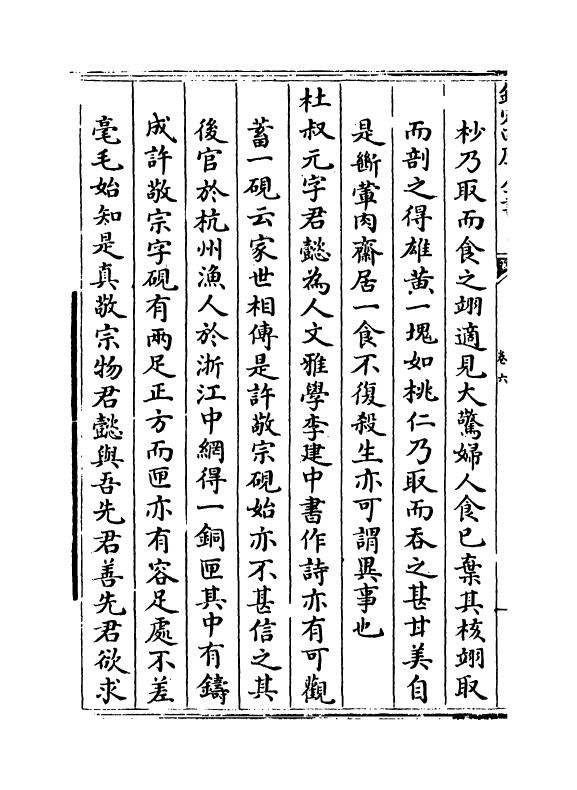 卷六
杪乃取而食之翊適見大驚婦人食已棄其核翊取
而剖之得雄黄一塊如桃仁乃取而吞之甚甘美自
是斷葷肉齋居一食不復殺生亦可謂異事也
杜叔元字君懿為人文雅學李建中書作詩亦有可觀
蓄一硯云家世相傳是許敬宗硯始亦不甚信之其
後官於杭州漁人於浙江中網得一銅匣其中有鑄
成許敬宗字硯有兩足正方而匣亦有容足處不差
毫毛始知是真敬宗物君懿與吾先君善先君欲求